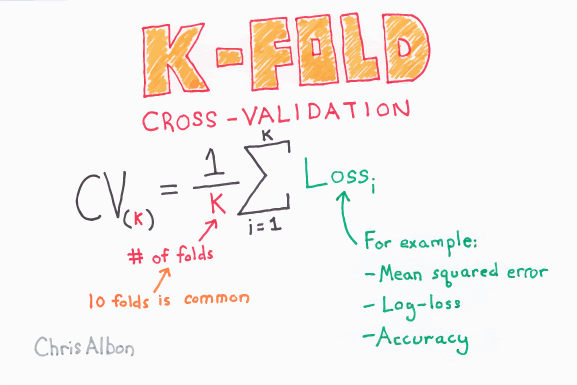 K-FOLD
CROSS-VALIDATION
CV(K) = 1/K K∑i=1 Lossi
# of folds
10 folds is common
For example:
-Mean squared error
-Log-loss
-Accuracy
Chris Albon